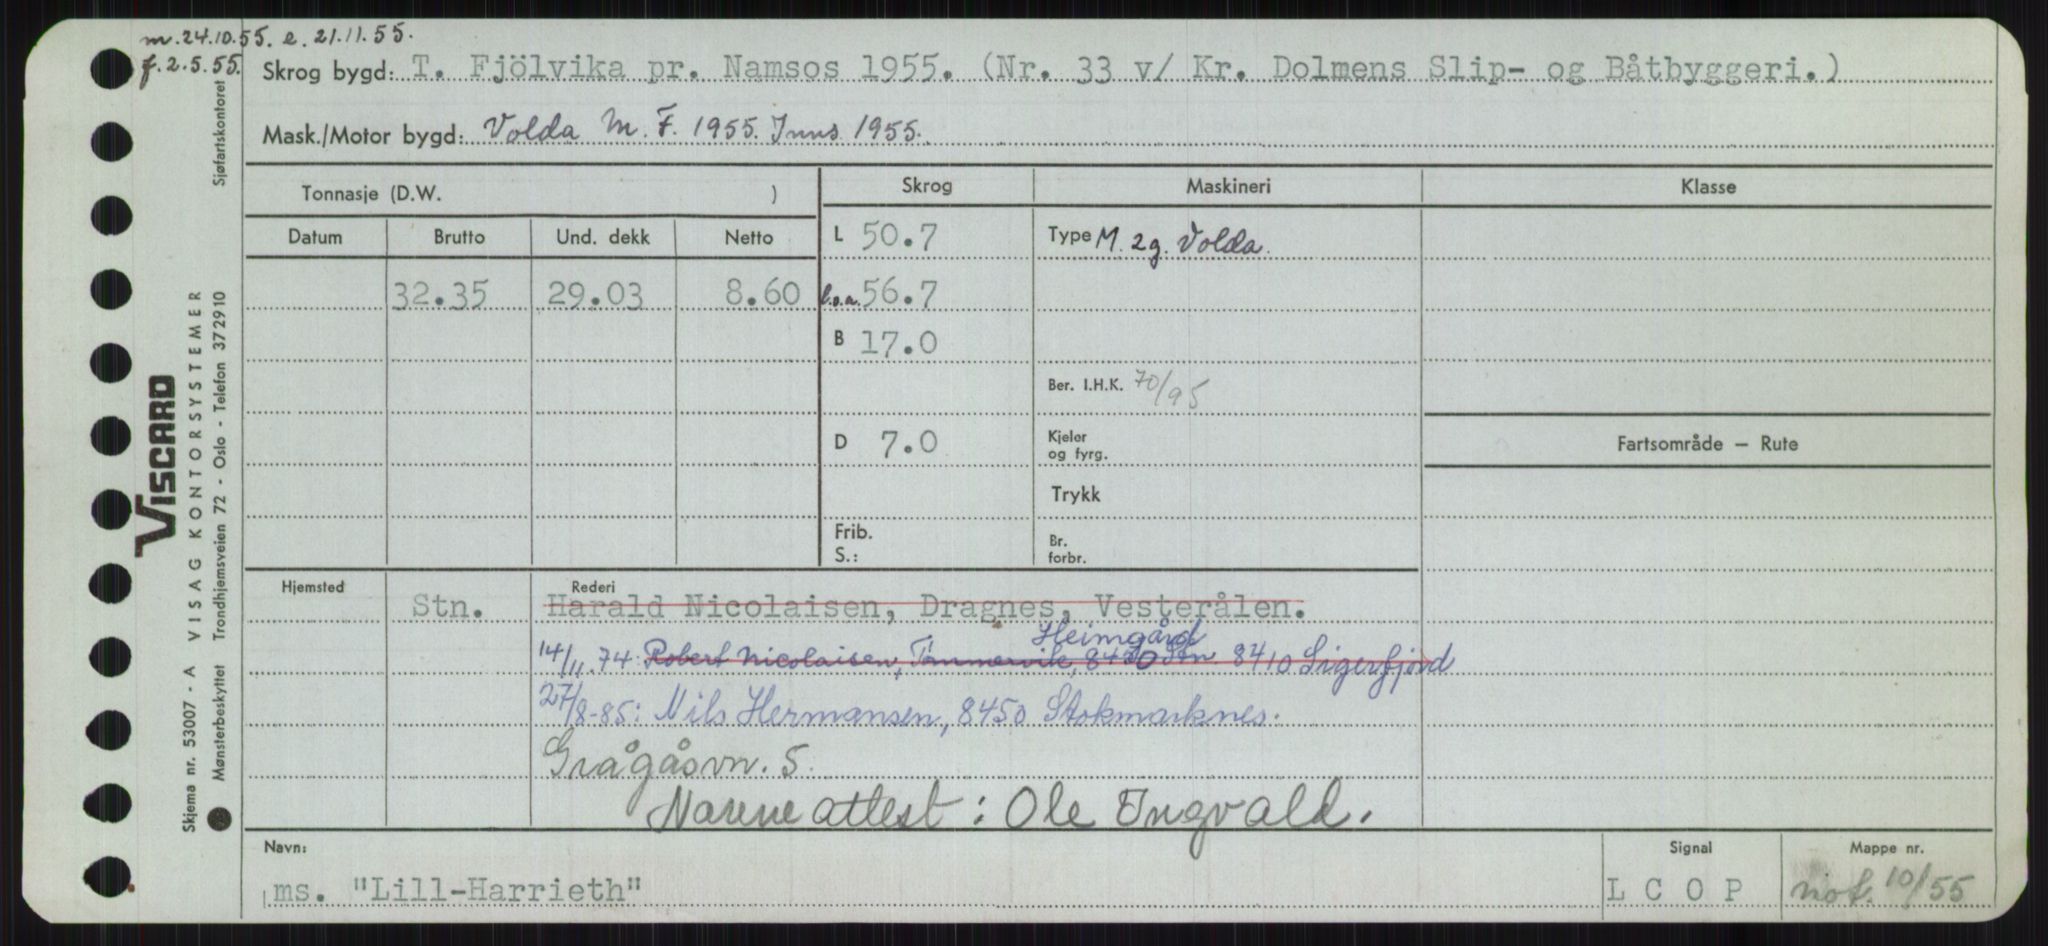 m. 24.10.55. e. 21.11.55.
f. 2.5.55.
Skrog bygd: T. Fjölvika pr. Namsos 1955. (Nr. 33 v/ Kr. Dolmens Slip- og Båtbyggeri.)
Mask./Motor bygd: Volda M. F. 1955. Inns. 1955.
Tonnasje (D.W. )
Skrog
Maskineri
Klasse
Datum
Brutto
Und. dekk
Netto
L 50.7
Type M. 2g. Volda.
32.35
29.03
8.60
l.o.a. 56.7
B 17.0
Ber. I.H.K. 70/95
D 7.0
Kjeler
og fyrg.
Fartsområde – Rute
Trykk
Frib.
S.:
Br.
forbr.
Hjemsted
Rederi
Stn.
Harald Nicolaisen, Dragnes, Vesterålen.
Heimgård
14/11.74: Robert Nicolaisen, Tømmervik, 8450 Stn. 8410 Sigerfjord
27/8-85: Nils Hermansen, 8450 Stokmarknes.
Grågåsvn. 5.
Navne attest: Ole Ingvald.
Navn:
ms. "Lill-Harrieth"
Signal
LCOP
Mappe nr.
not. 10/55
Sjøfartskontoret
VISCARD
VISAG KONTORSYSTEMER
Trondhjemsveien 72 - Oslo - Telefon 372910
Skjema nr. 53007 - A
Mønsterbeskyttet